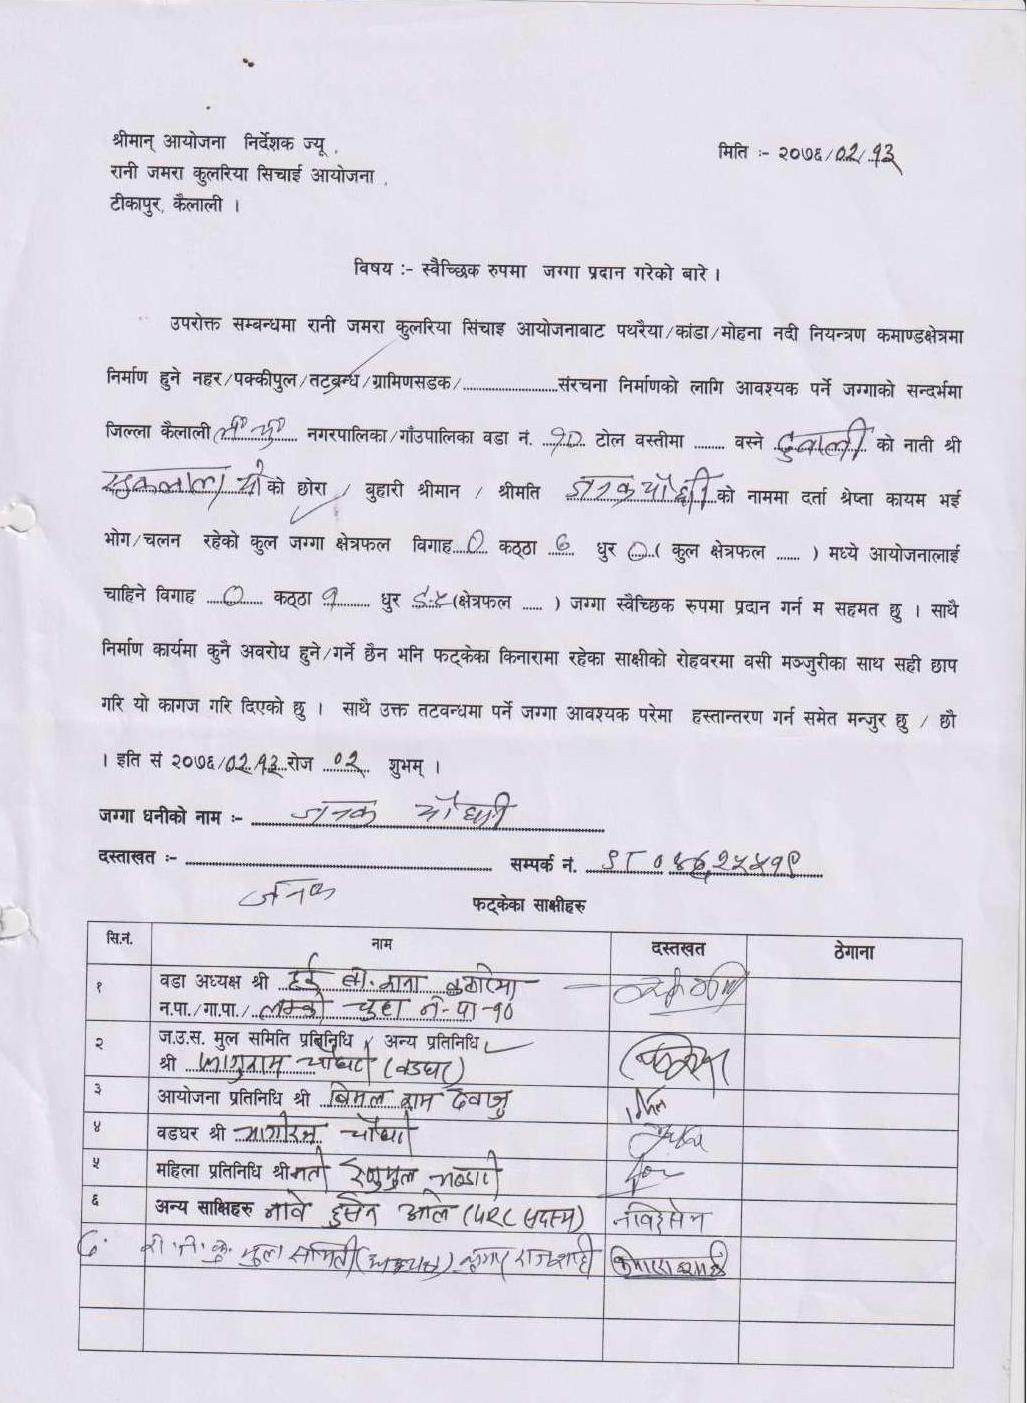 श्रीमान् आयोजना निर्देशक ज्यू ,
मिति :- २०७६/०२/१३
रानी जमरा कुलरिया सिचाई आयोजना ,
टीकापुर, कैलाली ।
विषय :- स्वैच्छिक रुपमा जग्गा प्रदान गरेको बारे ।
उपरोक्त सम्बन्धमा रानी जमरा कुलरिया सिंचाइ आयोजनाबाट पथरैया/कांडा/मोहना नदी नियन्त्रण कमाण्डक्षेत्रमा
निर्माण हुने नहर/पक्कीपुल/तटबन्ध/ग्रामिणसडक/........................संरचना निर्माणको लागि आवश्यक पर्ने जग्गाको सन्दर्भमा
जिल्ला कैलाली ल० चु० नगरपालिका/गाँउपालिका वडा नं. १० टोल वस्तीमा ........ वस्ने को नाती श्री
को छोरा / बुहारी श्रीमान / श्रीमति जनक चौधरी को नाममा दर्ता श्रेप्ता कायम भई
भोग/चलन रहेको कुल जग्गा क्षेत्रफल विगाह ० कठ्ठा ६ धुर ० ( कुल क्षेत्रफल ...... ) मध्ये आयोजनालाई
चाहिने विगाह ० कठ्ठा १ धुर (क्षेत्रफल ..... ) जग्गा स्वैच्छिक रुपमा प्रदान गर्न म सहमत छु । साथै
निर्माण कार्यमा कुनै अवरोध हुने/गर्ने छैन भनि फट्केका किनारामा रहेका साक्षीको रोहवरमा वसी मञ्जुरीका साथ सही छाप
गरि यो कागज गरि दिएको छु । साथै उक्त तटवन्धमा पर्ने जग्गा आवश्यक परेमा हस्तान्तरण गर्न समेत मन्जुर छु / छौ
। इति सं २०७६/०२/१३ रोज ०२ शुभम् ।
जग्गा धनीको नाम :- जनक चौधरी
दस्ताखत :- सम्पर्क नं.
जनक
फट्केका साक्षीहरु
सि.नं. नाम दस्तखत ठेगाना
१ वडा अध्यक्ष श्री
न.पा./गा.पा./ लम्की चुहा न-पा-१०
२ ज.उ.स. मुल समिति प्रतिनिधि / अन्य प्रतिनिधि
श्री चौधरी (वडघर)
३ आयोजना प्रतिनिधि श्री बिमल राम देवाजु
४ वडघर श्री चौधरी
५ महिला प्रतिनिधि श्रीमती
६ अन्य साक्षिहरु
मुल समिती (अध्यक्ष)